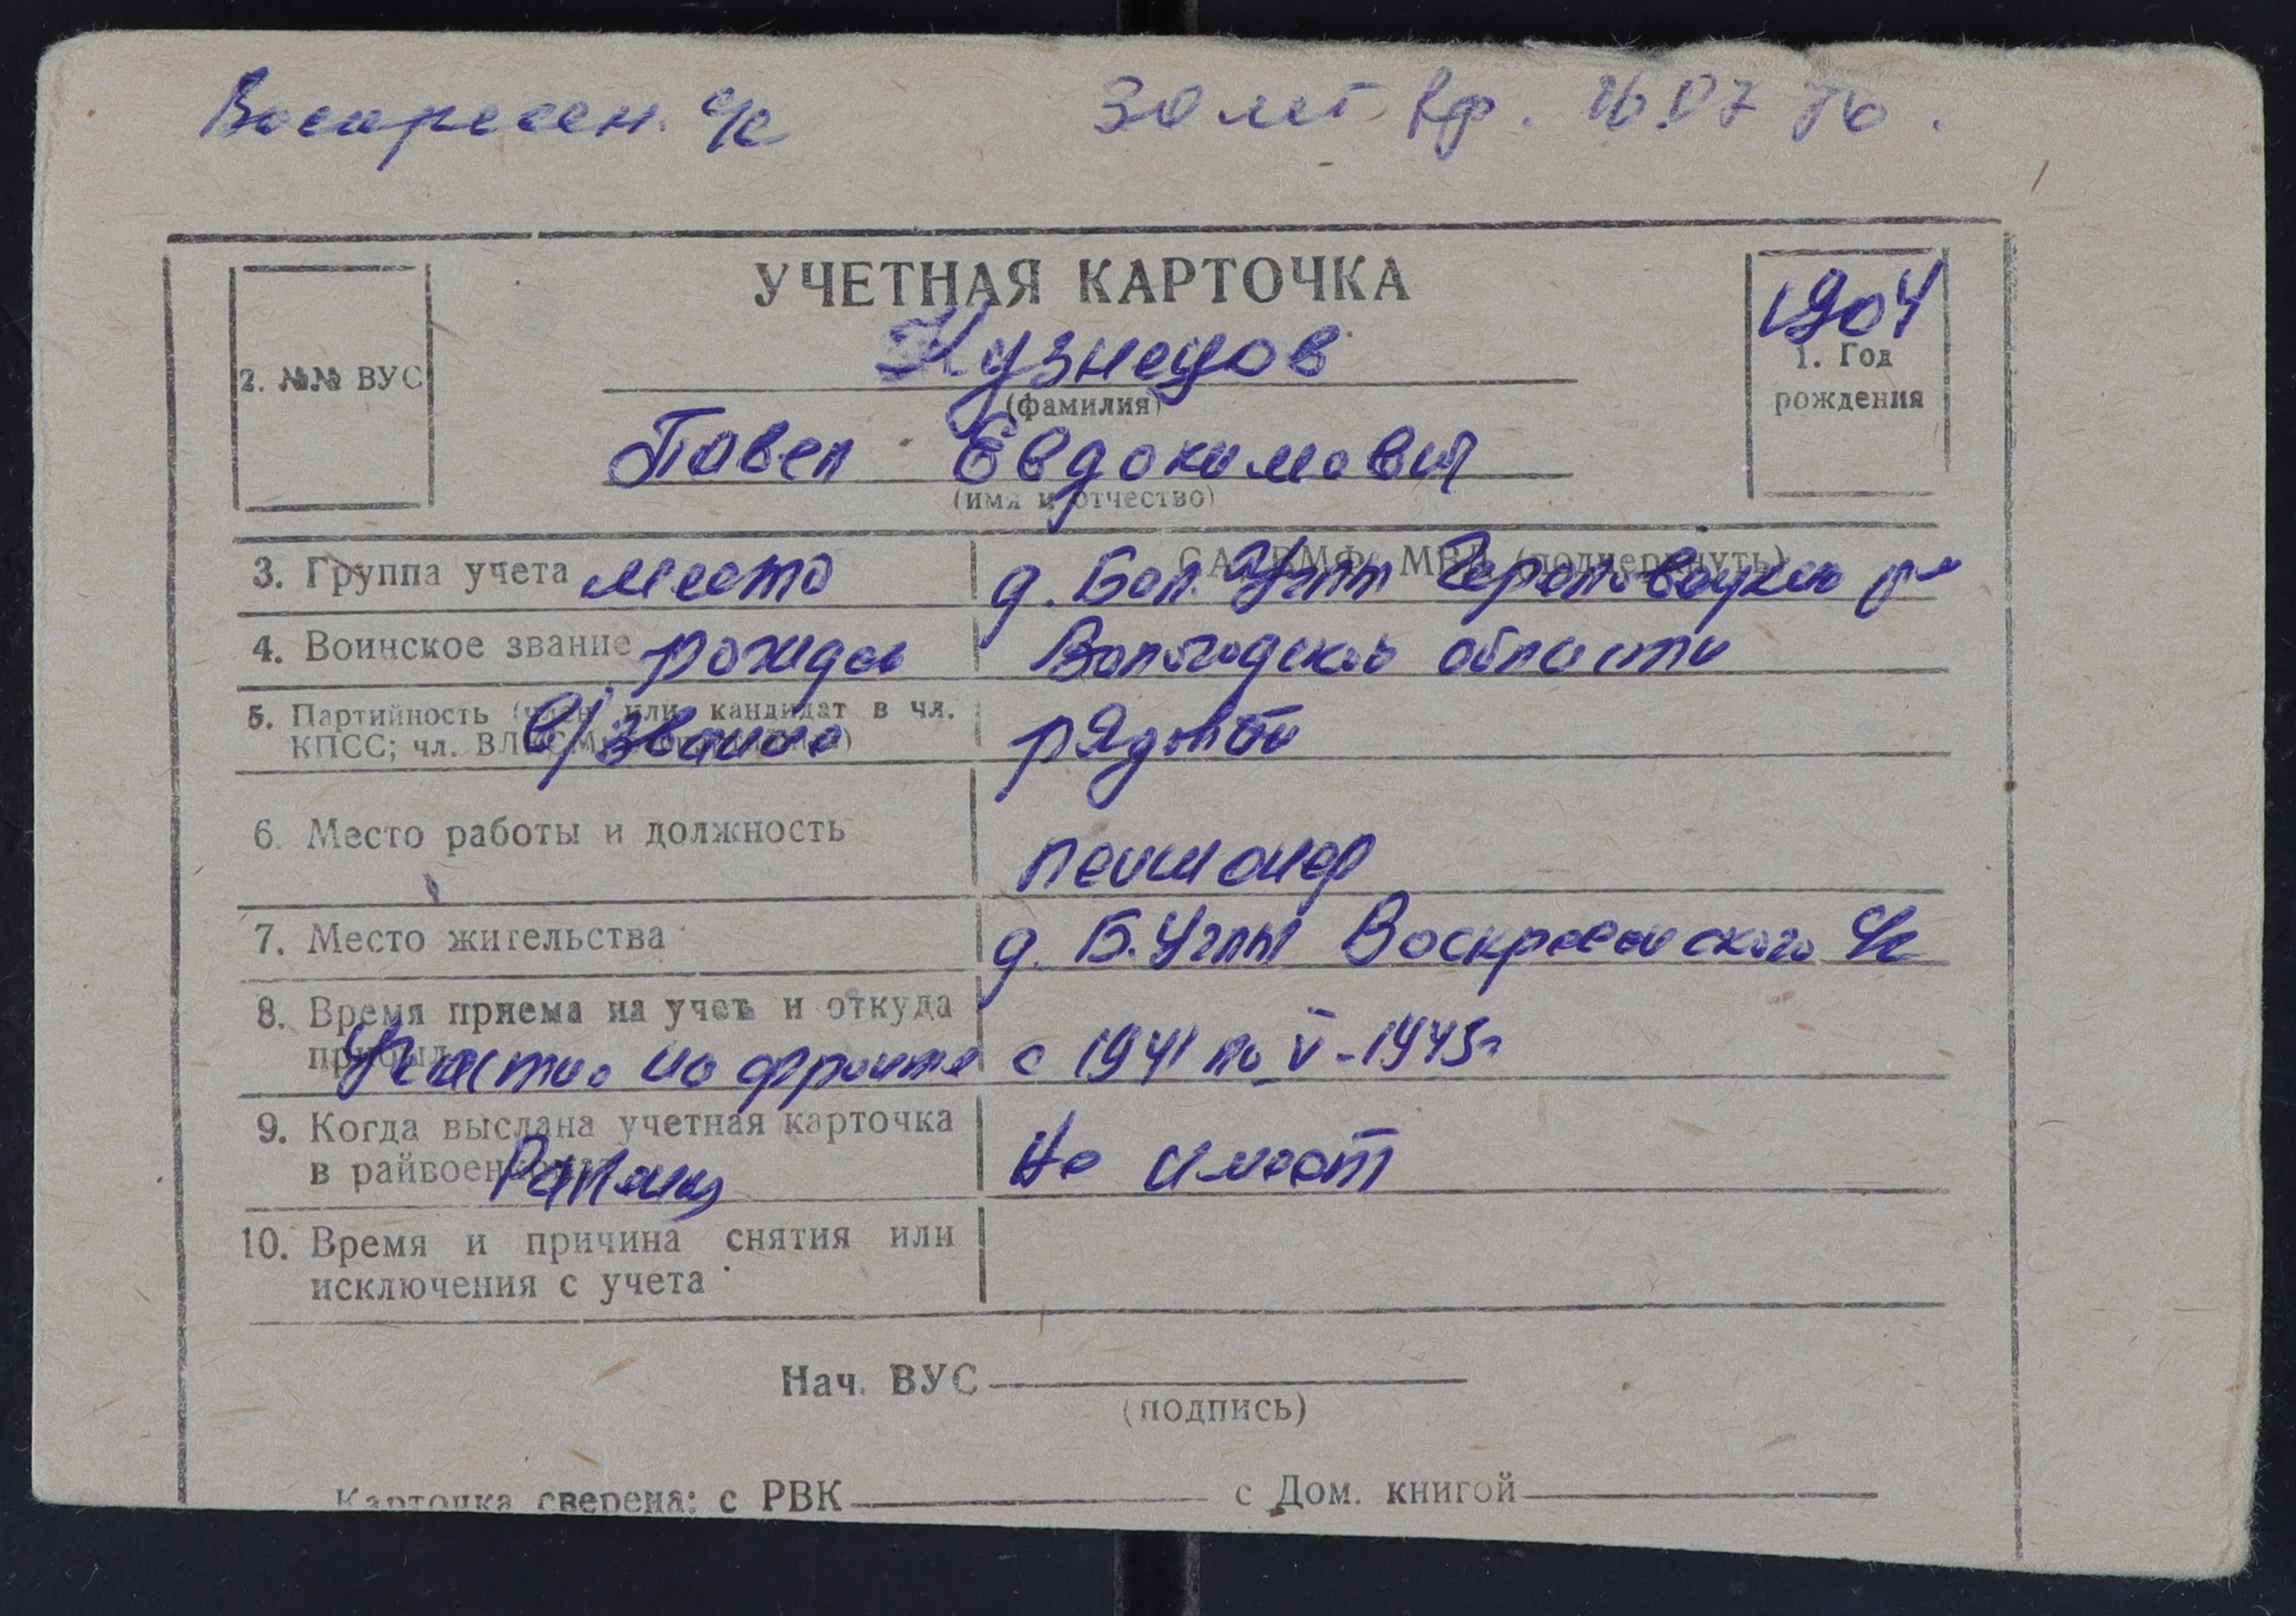 Воскресен. с/с 30 лет вр. 16.07 76.
УЧЕТНАЯ КАРТОЧКА
1904
1. Год рождения
2. №№ ВУС
Кузнецов
(фамилия)
Павел Евдокимович
(имя и отчество)
3. Группа учета место д. Бол. Углы Череповецкого р-н
4. Воинское звание рожден Вологодской области
5. Партийность (член или кандидат в чл.
КПСС; чл. ВЛКСМ в/звание рядовой
6. Место работы и должность пенсионер
7. Место жительства д. Б. Углы Воскресенского с/с
8. Время приема на учет и откуда
прибыл Участие на фронте с 1941 по V-1945г
9. Когда выслана учетная карточка
в райвоенкомат Ранения Не имеет
10. Время и причина снятия или
исключения с учета
Нач. ВУС
(подпись)
Карточка сверена: с РВК с Дом. книгой